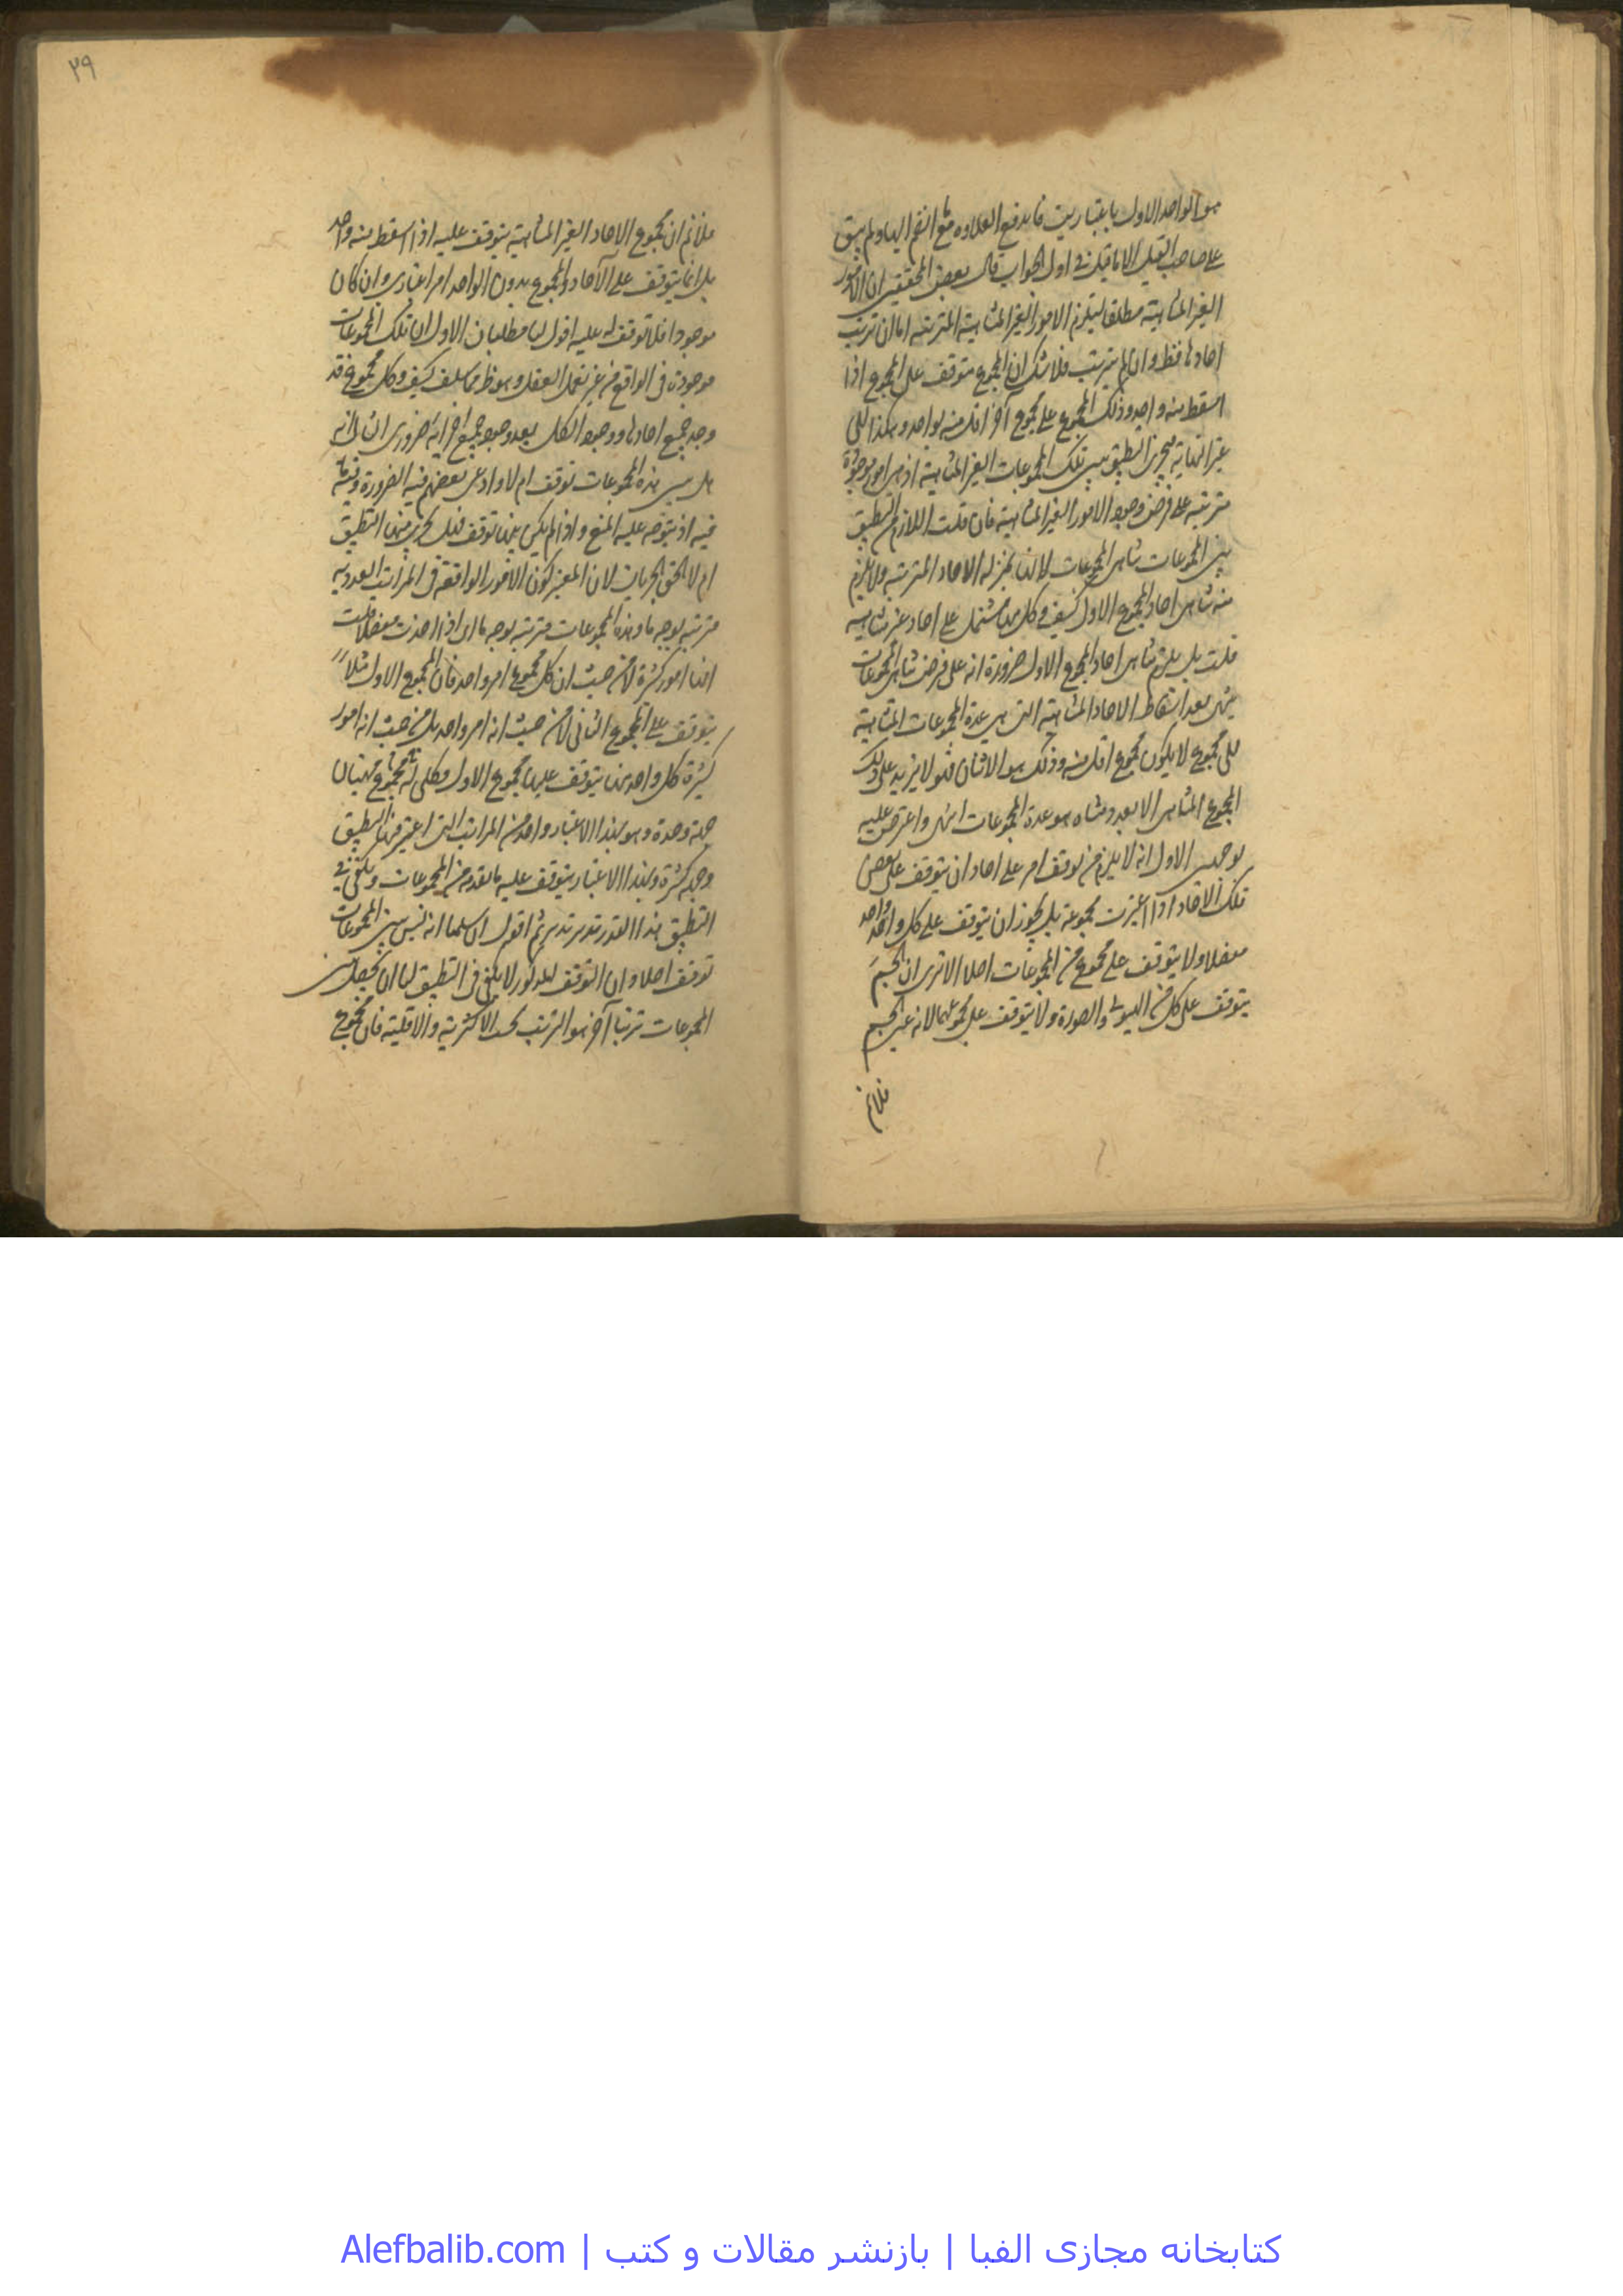 هو الواحد الاول باعتبارين فاندفع العلاوة مع انضم اليها ولم يبق
على صاحب القيل الا ما قيل في اول الجواب قال بعض المحققين ان الامور
الغير المتناهية مطلقا يستلزم الامور الغير المتناهية المترتبة اما ان ترتب
احادها فظ وان لم يترتب فلا شك ان المجموع متوقف على المجموع اذا
اسقط منه واحد وذلك المجموع على مجموع آخر اقل منه بواحد وهكذا الى
غير النهاية فيجرى التطبيق بين تلك المجموعات الغير المتناهية اذ هى امور موجودة
مترتبة على فرض وجود الامور الغير المتناهية فان قلت اللازم من التطبيق
بين المجموعات تناهى المجموعات لانها بمنزلة الاحاد المترتبة ولا يلزم
منه تناهى احاد المجموع الاول كيف وكل منها مشتمل على احاد غير متناهية
قلت بل يلزم تناهى احاد المجموع الاول ضرورة انه على فرض تناهى المجموعات
ينتهى بعد اسقاط الاحاد المتناهية التى هى عدة المجموعات المتناهية
الى مجموع لا يكون مجموع اقل منه وذلك هو الاثنان فهو لا يزيد على ذلك
المجموع المتناهى الا بعدد متناه هو عدة المجموعات انتهى واعترض عليه
بوجهين الاول انه لا يلزم من توقف امر على احاد ان يتوقف على بعض
تلك الاحاد اذا اعتبرت مجموعة بل يجوز ان يتوقف على كل واحد واحد
مفصلا ولا يتوقف على مجموع من المجموعات اصلا الا ترى ان الجسم
يتوقف على كل من الهيولى والصورة ولا يتوقف على مجموعهما لانه عين الجسم
فلا نم
٢٩
فلا نم ان مجموع الاحاد الغير المتناهية يتوقف عليه اذا اسقط منه واحد
بل انما يتوقف على الآحاد والمجموع بدون الواحد امر اعتبارى وان كان
موجودا فلا توقف له عليه اقول لنا مطلبان الاول ان تلك المجموعات
موجودة فى الواقع من غير تعمل العقل وهو ظ مما سلف كيف وكل مجموع قد
وجد جميع احادها ووجود الكل بعد وجود جميع اجزائه ضرورى الثانى انه
هل بين هذه المجموعات توقف ام لا وادعى بعضهم فيه الضرورة
فيه اذ يتوجه عليه المنع واذا لم يكن بينها توقف فهل يجرى فيها التطبيق
ام لا الحق الجريان لان المعتبر كون الامور الواقعة فى المراتب العددية
مترتبة بوجه ما وهذه المجموعات مترتبة بوجه ما اى اذا اخذت مفصلة من حيث
انها امور كثيرة لا من حيث ان كل مجموع امر واحد فان المجموع الاول مثلا
يتوقف على المجموع الثانى لا من حيث انه امر واحد بل من حيث انه امور
كثيرة كل واحد منها يتوقف عليها مجموع الاول وكلى له مجموع جهتان
جهة وحدة وهو بهذا الاعتبار واحد من المراتب التى اعتبر فيها التطبيق
وجهة كثرة وبهذا الاعتبار يتوقف عليه ما تقدمه من المجموعات ويكفى فى
التطبيق هذا القدر تدبر تدبر ثم اقول ان سلمنا انه ليس بين المجموعات
توقف اصلا وان التوقف المذكور لا يكفى فى التطبيق لنا ان نحصل بين
المجموعات ترتبا آخر هو الترتب بحسب الاكثرية والاقلية فان مجموع
كتابخانه مجازی الفبا | بازنشر مقالات و کتب | Alefbalib.com